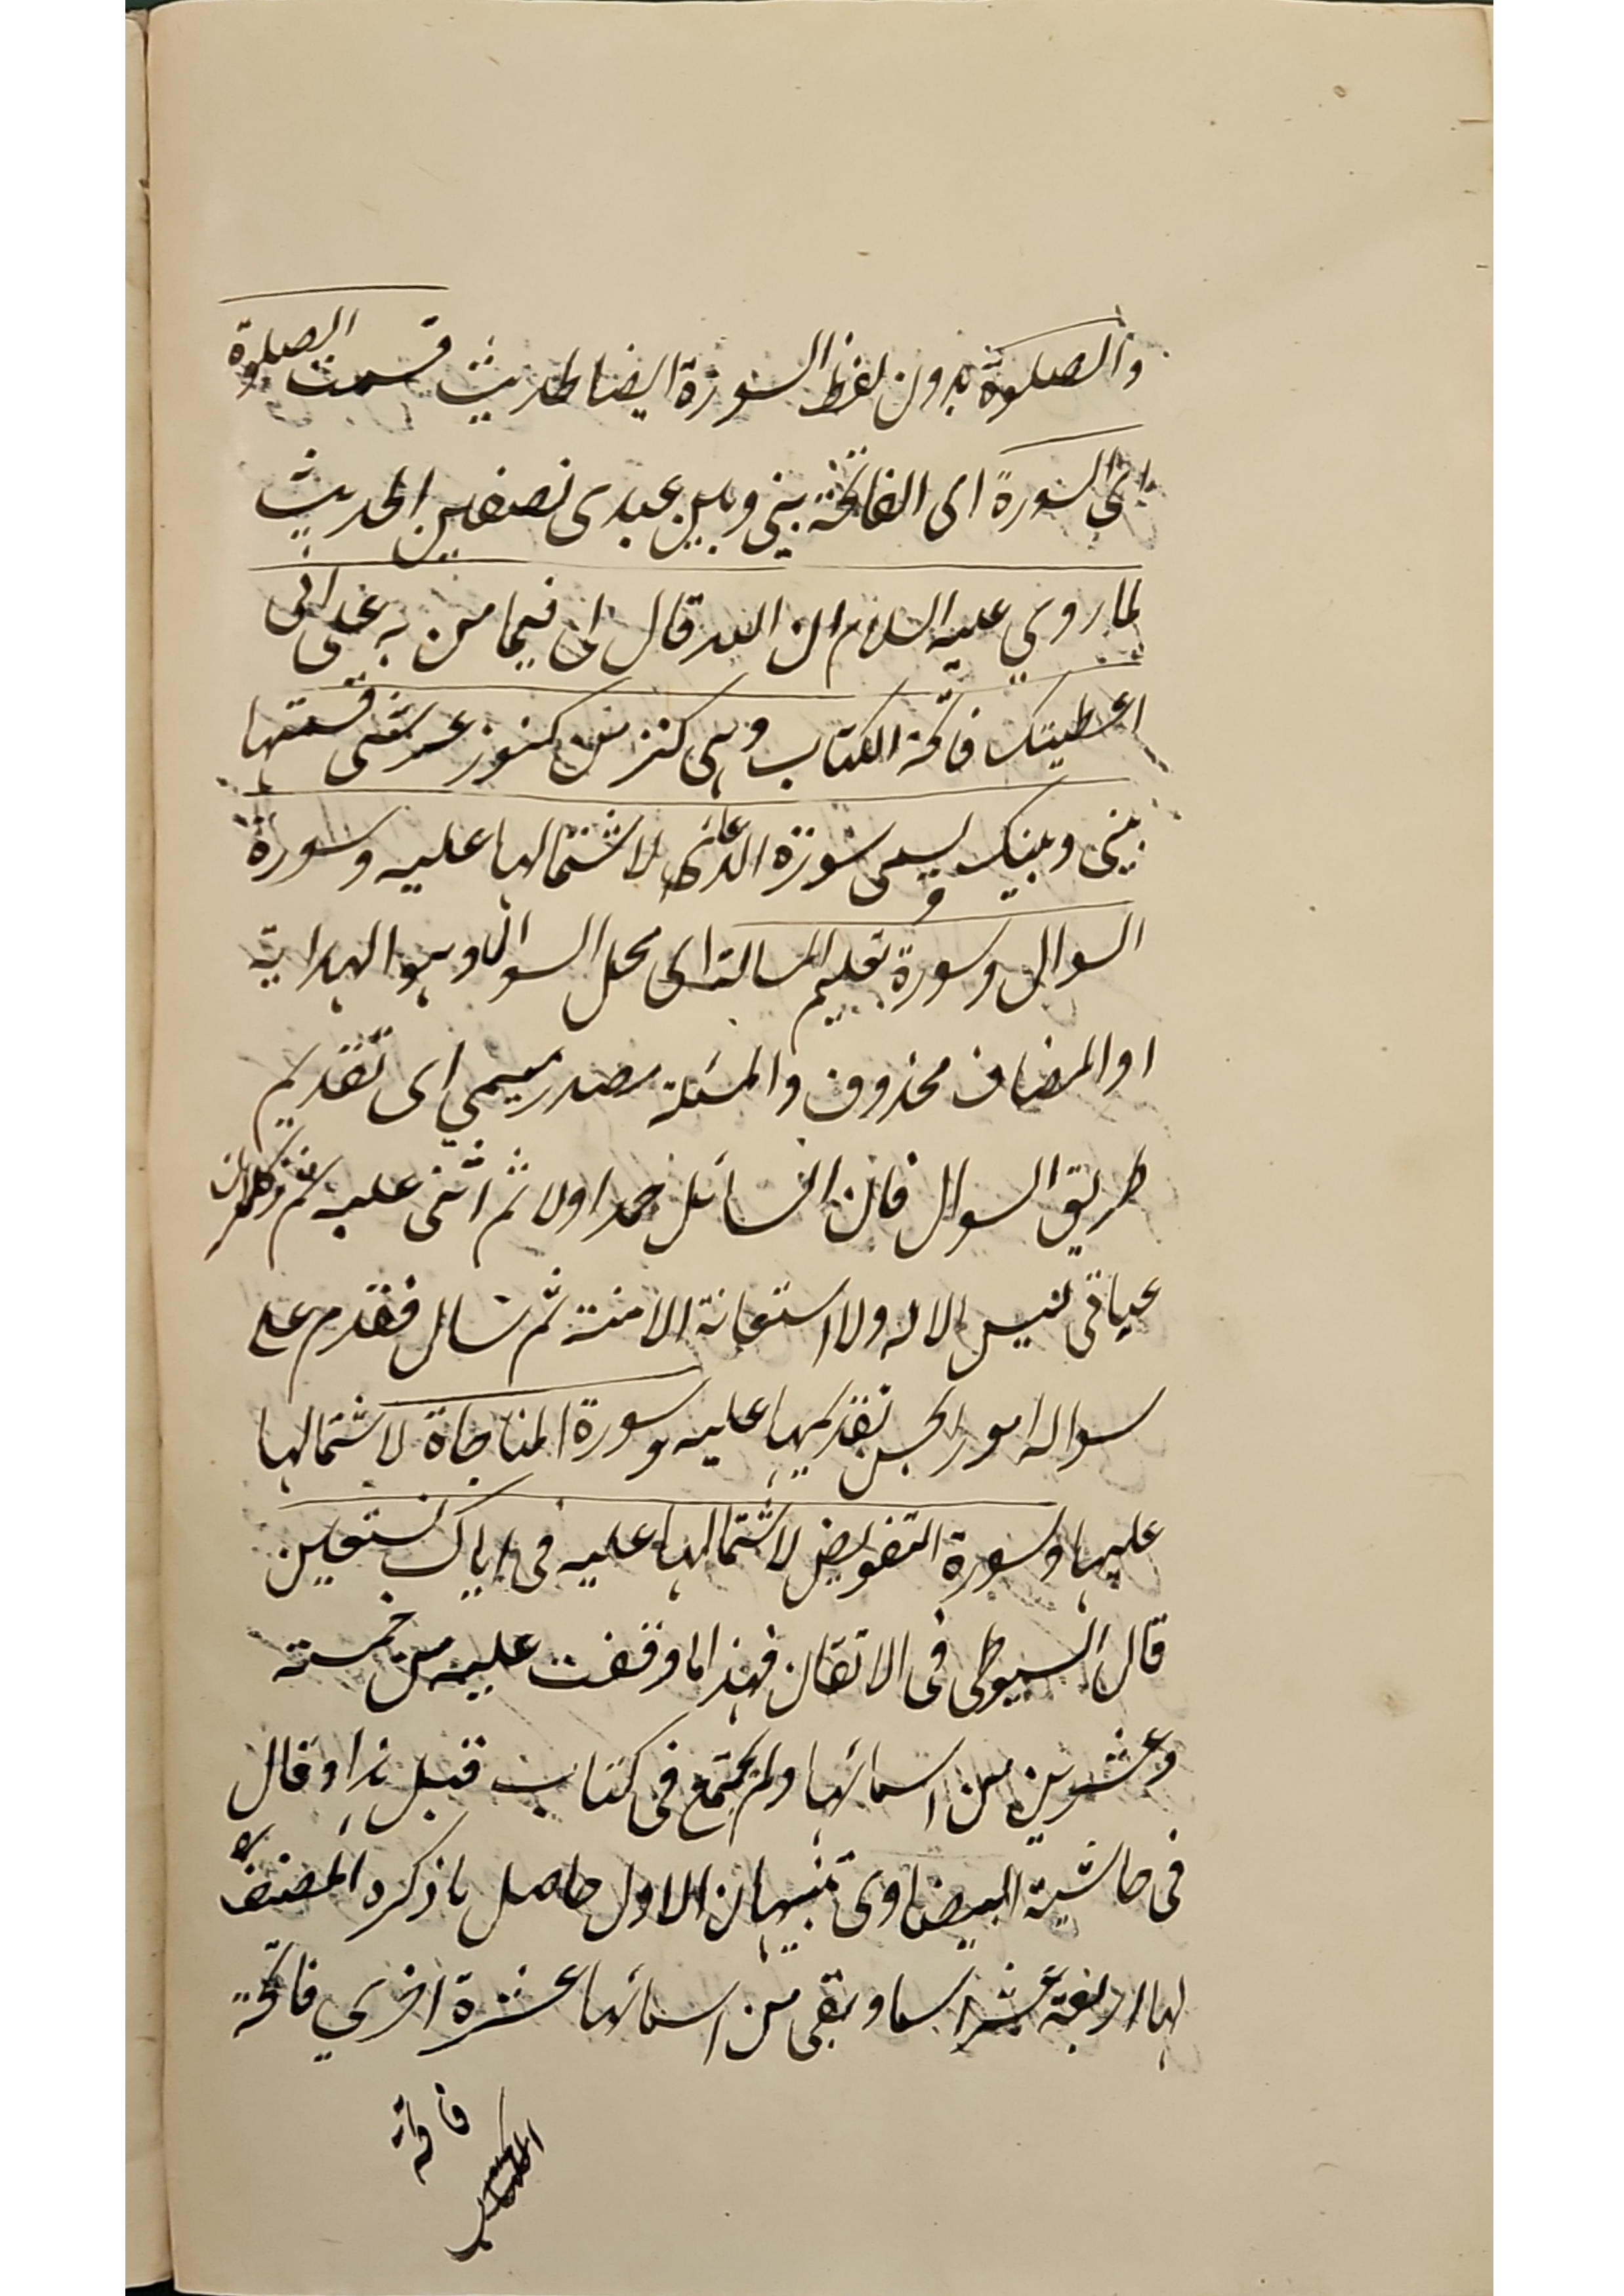 والصلوة بدون لفظ السورة ايضا لحديث قسمت الصلوة
اى السورة اى الفاتحة بينى وبين عبدى نصفين الحديث
لما روي عليه السلام ان الله قال لى فيما من به على انى
اعطيتك فاتحة الكتاب وهى كنز من كنوز عرشى قسمتها
بينى وبينك وسمى سورة الدعاء لاشتمالها عليه وسورة
السوال وسورة تعليم المسالة اى محل السوال وهو الهداية
او المضاف محذوف والمسئلة مصدر ميمي اى تقديم
طريق السوال فان السائل حمد اولا ثم اثنى عليه ثم ذكر ان
عياتى ليس الا له ولا استعانة الا منه ثم سال فقدم على
سواله امور يحسن تقديمها عليه وسورة المناجاة لاشتمالها
عليها وسورة التفويض لاشتمالها عليه فى اياك نستعين
قال السيوطى فى الاتقان فهذا ما وقفت عليه من خمسة
وعشرين من اسمائها ولم يجتمع فى كتاب قبل هذا وقال
فى حاشية البيضاوى تنبيهان الاول حاصل ما ذكره المصنف
لها اربعة عشر اسما وبقى من اسمائها عشرة اخري فاتحة
فاتحة